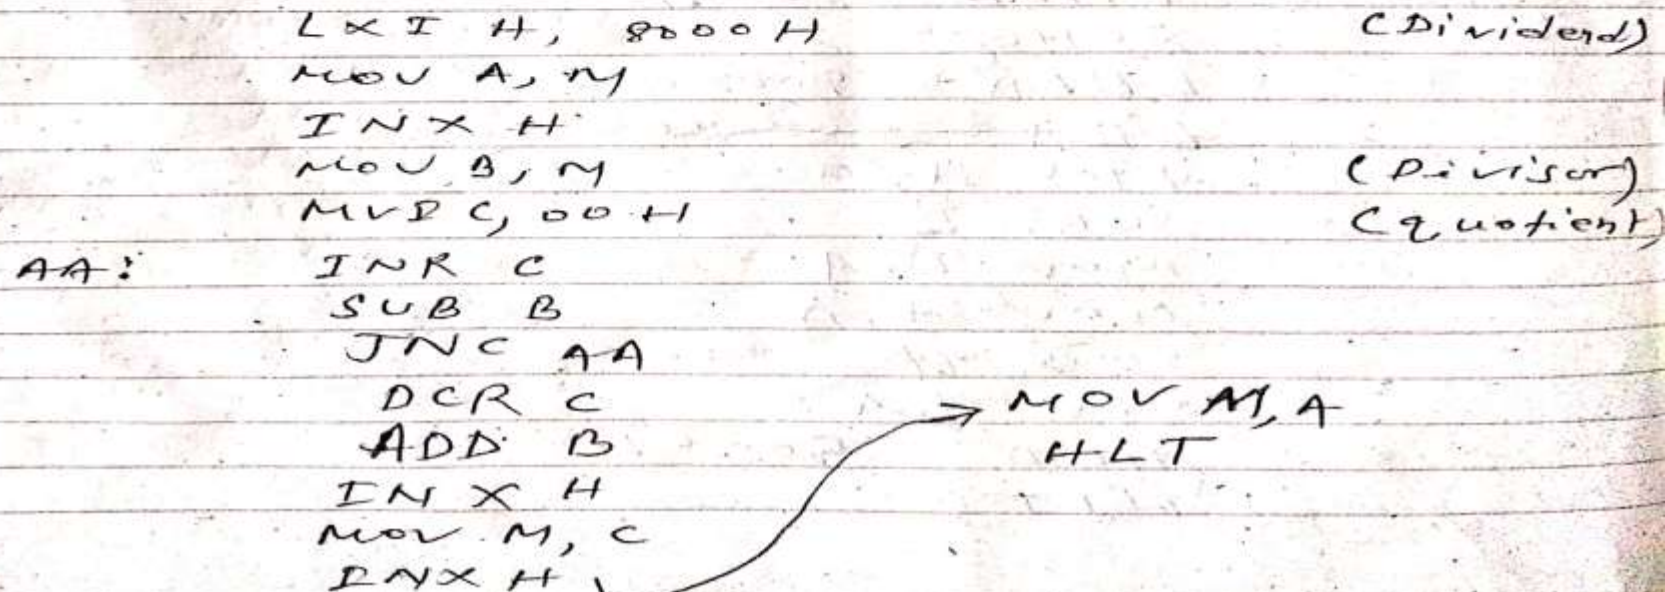 LXI H, 8000H (Dividend)
MOV A, M
INX H
MOV B, M (Divisor)
MVI C, 00H (quotient)
AA: INR C
SUB B
JNC AA
DCR C
ADD B
INX H
MOV M, C
INX H
MOV M, A
HLT